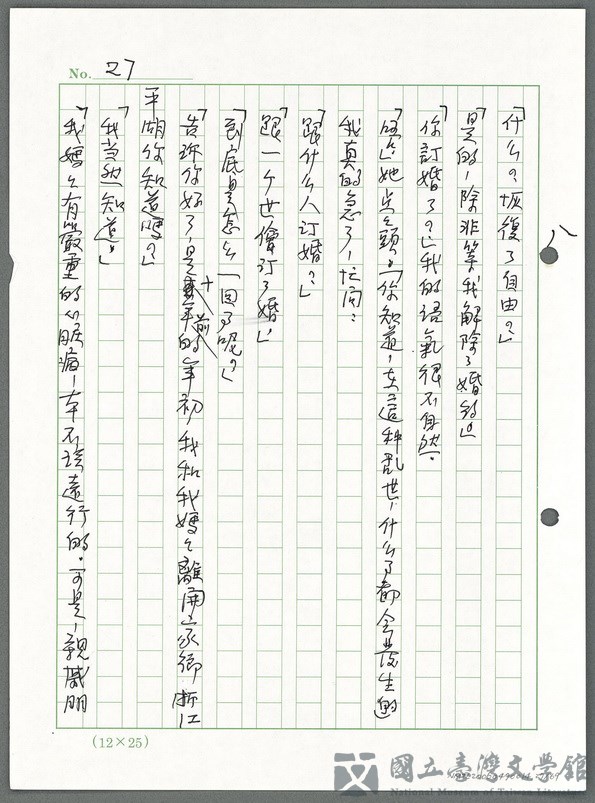 No. 27
八
「什么？恢復了自由？」
「是的，除非等我解除了婚約。」
「你訂婚了？」我的語氣很不自然。
「嗯」她点点頭。「你知道，在這种乱世，什么了都会發生的
我真的急了，忙问：
「跟什么人订婚？」
「跟一个世儈订了婚。」
「到底是怎么一回了呢？」
「告訴你好了，是前年的年初我和我媽々離開家鄉浙江
平湖你知道嗎？」
「我当然知道。」
「我媽々有嚴重的心脏病，本不該遠行的。可是，親戚朋
(12×25)
國立臺灣文學館
National Museum of Taiwan Literature